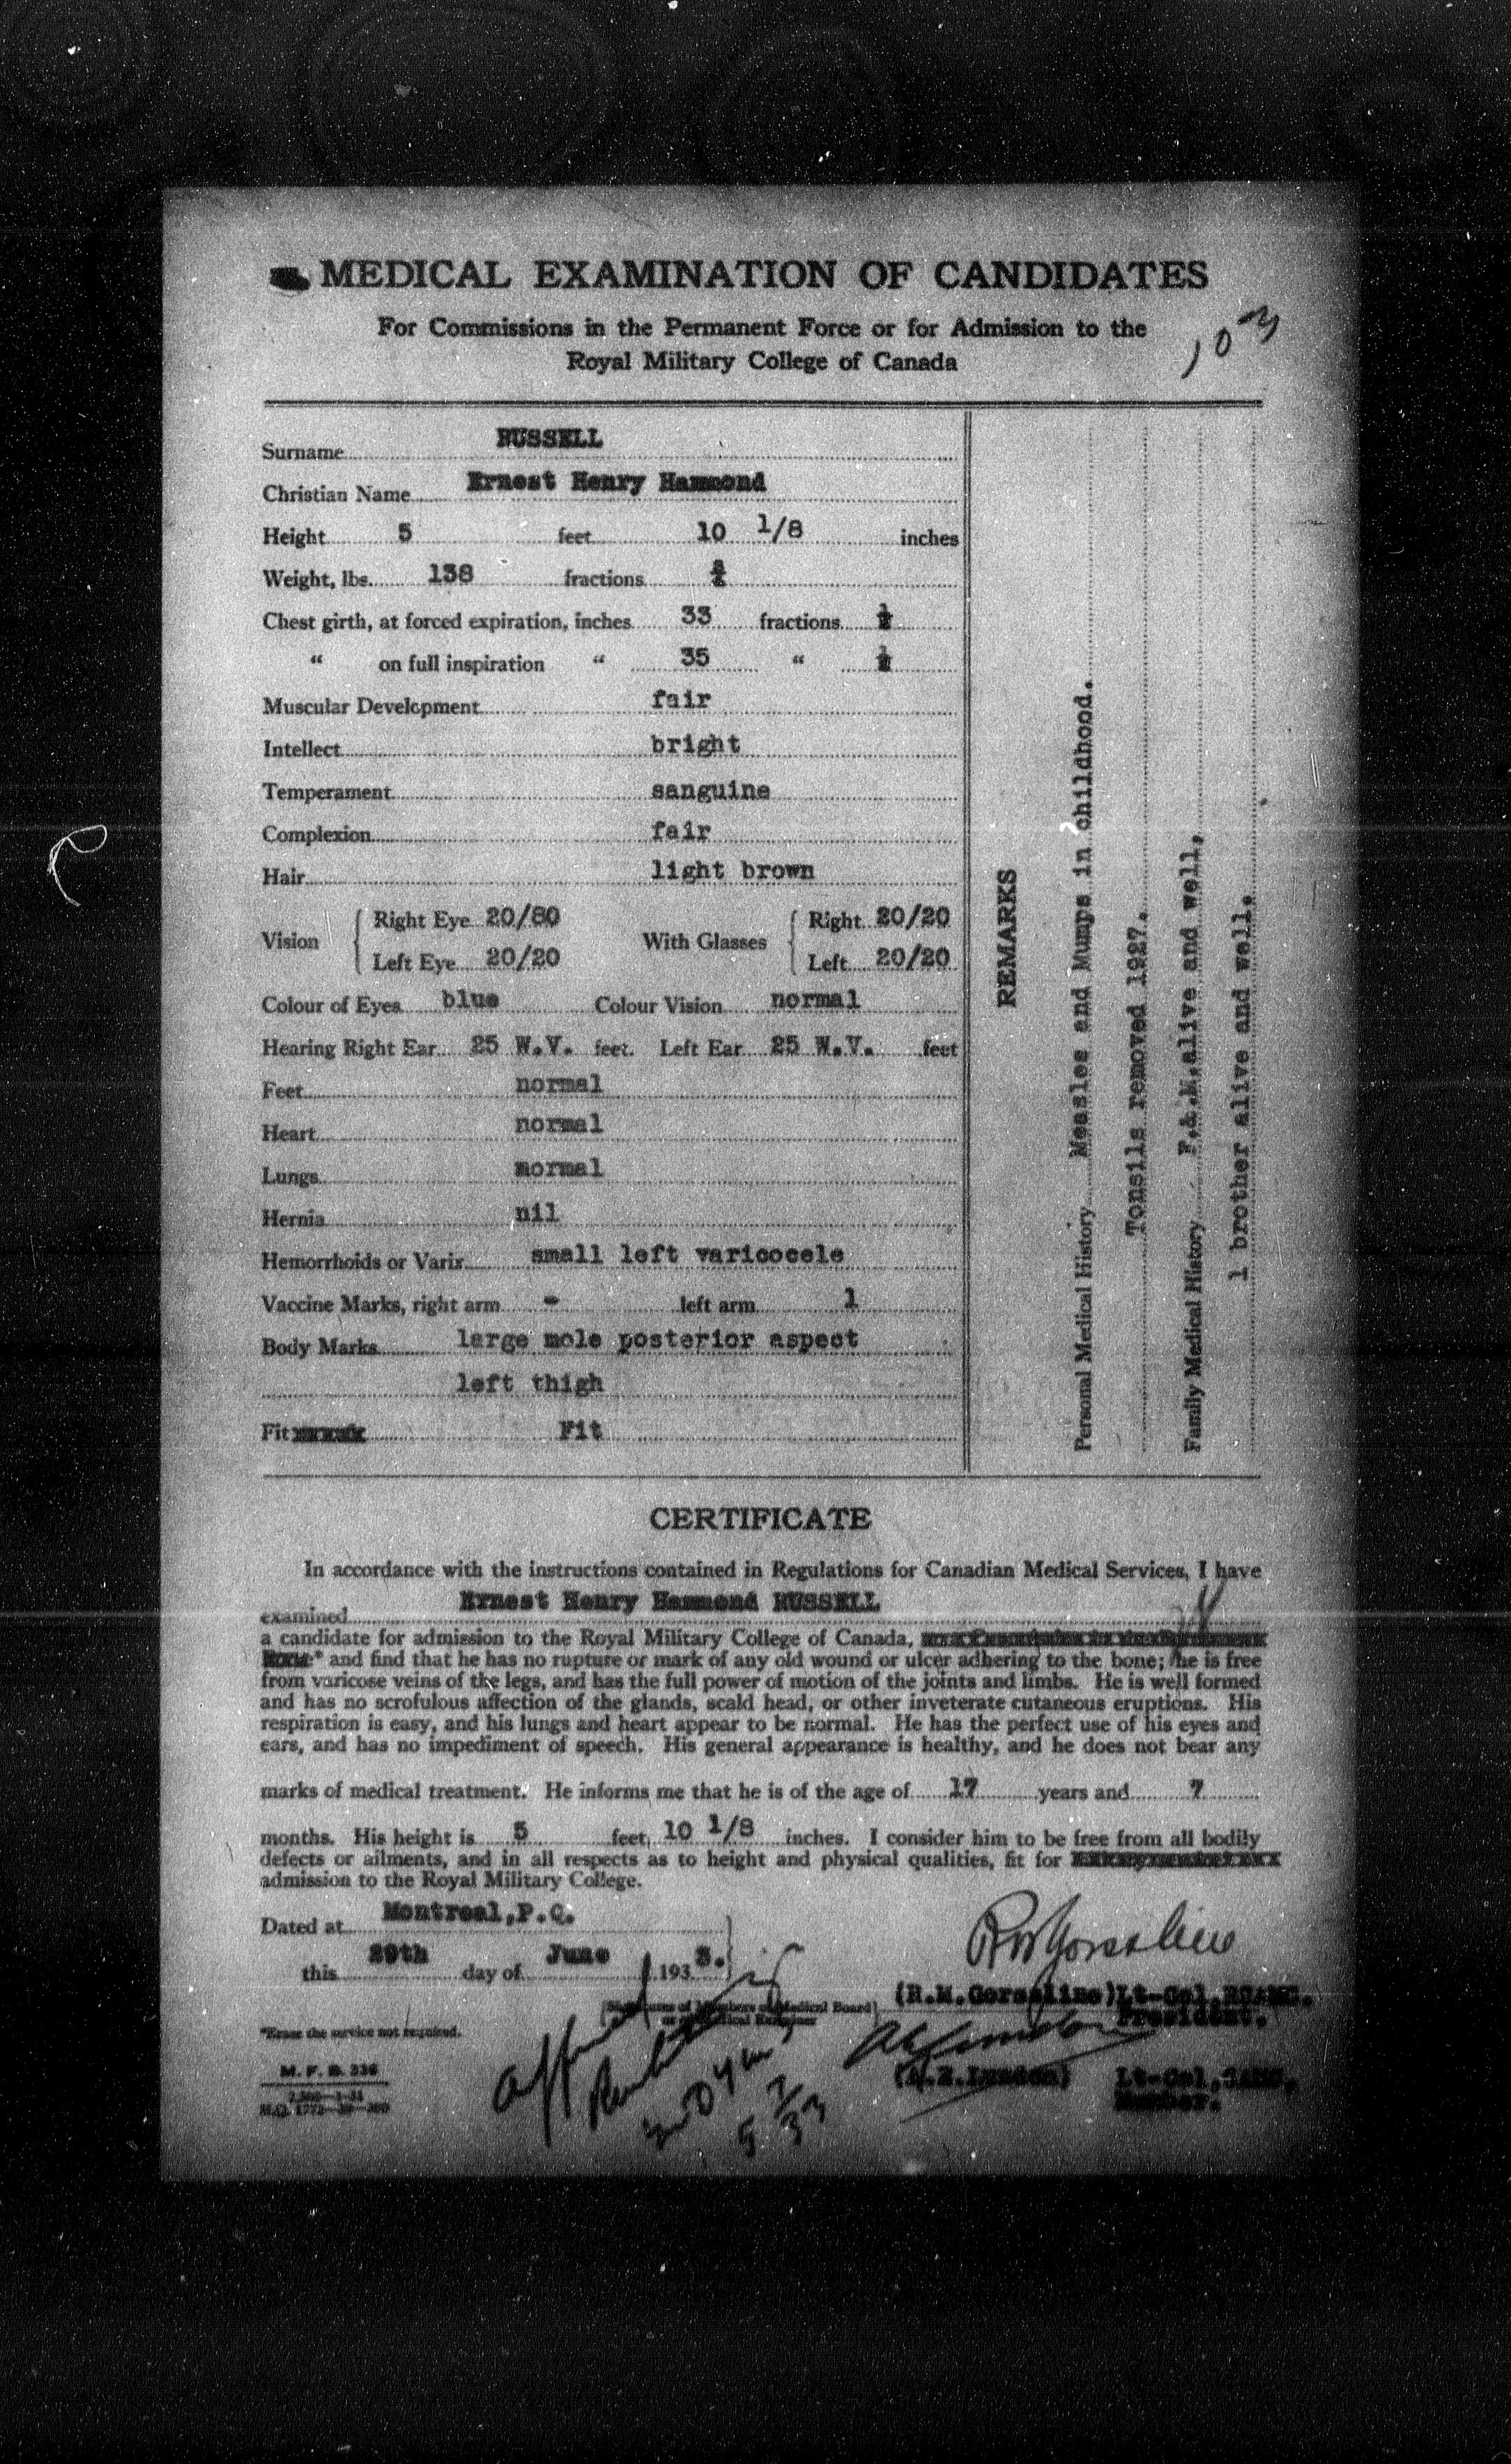 MEDICAL EXAMINATION OF CANDIDATES
For Commissions in the Permanent Force or for Admission to the
Royal Military College of Canada
Surname RUSSELL
Christian Name Ernest Henry Hammond
Height 5 feet 10 1/8 inches
Weight, lbs. 138 fractions
Chest girth, at forced expiration, inches 33 fractions ½
" on full inspiration " 35 " ½
Muscular Development fair
Intellect bright
Temperament sanguine
Complexion fair
Hair light brown
Vision Right Eye 20/80 With Glasses Right 20/20
Left Eye 20/20 Left 20/20
Colour of Eyes blue Colour Vision normal
Hearing Right Ear 25 W.V. feet. Left Ear 25 W.V. feet
Feet normal
Heart normal
Lungs normal
Hernia nil
Hemorrhoids or Varix small left varicocele
Vaccine Marks, right arm - left arm 1
Body Marks large mole posterior aspect
left thigh
Fit Fit
REMARKS
Personal Medical History Measles and Mumps in childhood.
Tonsils removed 1927.
Family Medical History F.&.M.alive and well,
1 brother alive and well.
CERTIFICATE
In accordance with the instructions contained in Regulations for Canadian Medical Services, I have
examined Ernest Henry Hammond RUSSELL
a candidate for admission to the Royal Military College of Canada,
* and find that he has no rupture or mark of any old wound or ulcer adhering to the bone; he is free
from varicose veins of the legs, and has the full power of motion of the joints and limbs. He is well formed
and has no scrofulous affection of the glands, scald head, or other inveterate cutaneous eruptions. His
respiration is easy, and his lungs and heart appear to be normal. He has the perfect use of his eyes and
ears, and has no impediment of speech. His general appearance is healthy, and he does not bear any
marks of medical treatment. He informs me that he is of the age of 17 years and 7
months. His height is 5 feet, 10 1/8 inches. I consider him to be free from all bodily
defects or ailments, and in all respects as to height and physical qualities, fit for
admission to the Royal Military College.
Dated at Montreal,P.Q.
this 29th day of June 193 3.
RM Gorssline
(R.M.Gorssline)Lt-Col.RCAMC.
President.
Signatures of Members of Medical Board
or Medical Examiner
*Erase the service not required.
Lt-Col.CAMC.
Member.
M. F. B. 336